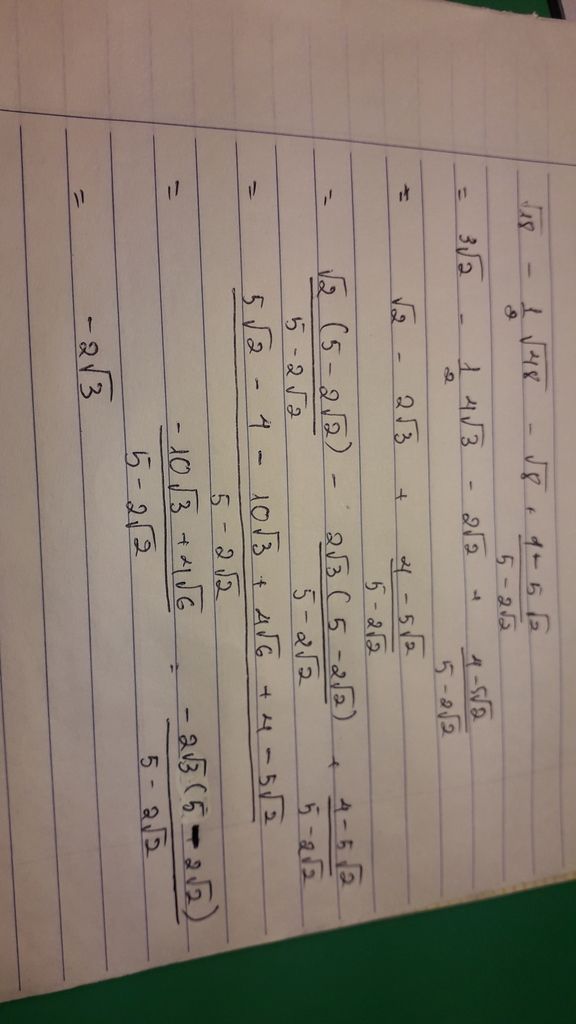 √18 - 1/2 √48 - √8 + (4-5√2)/(5-2√2)
= 3√2 - 1/2 4√3 - 2√2 + (4-5√2)/(5-2√2)
= √2 - 2√3 + (4-5√2)/(5-2√2)
= √2(5-2√2)/(5-2√2) - 2√3(5-2√2)/(5-2√2) + (4-5√2)/(5-2√2)
= (5√2 - 4 - 10√3 + 4√6 + 4 - 5√2)/(5-2√2)
= (-10√3 + 4√6)/(5-2√2) = -2√3(5-2√2)/(5-2√2)
= -2√3